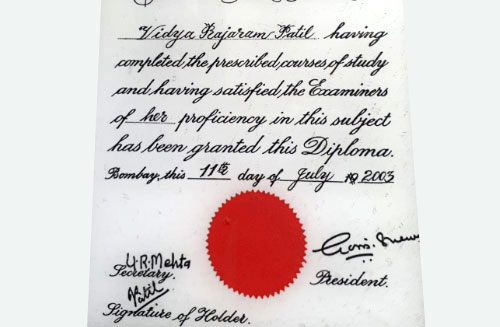 Vidya Rajaram Patil having
completed, the, prescribed, courses, of study
and, having satisfied, the Examiners
of her proficiency in this subject
has been granted this Diploma.
Bombay, this 11th day of July 19 2003
U.R. Mehta
Secretary.
President.
Patil
Signature of Holder.